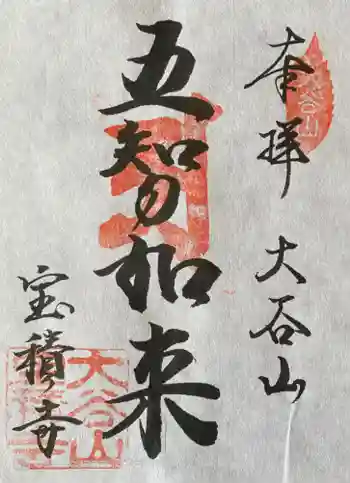 奉拝 大谷山
五智如来
宝積寺
大谷山